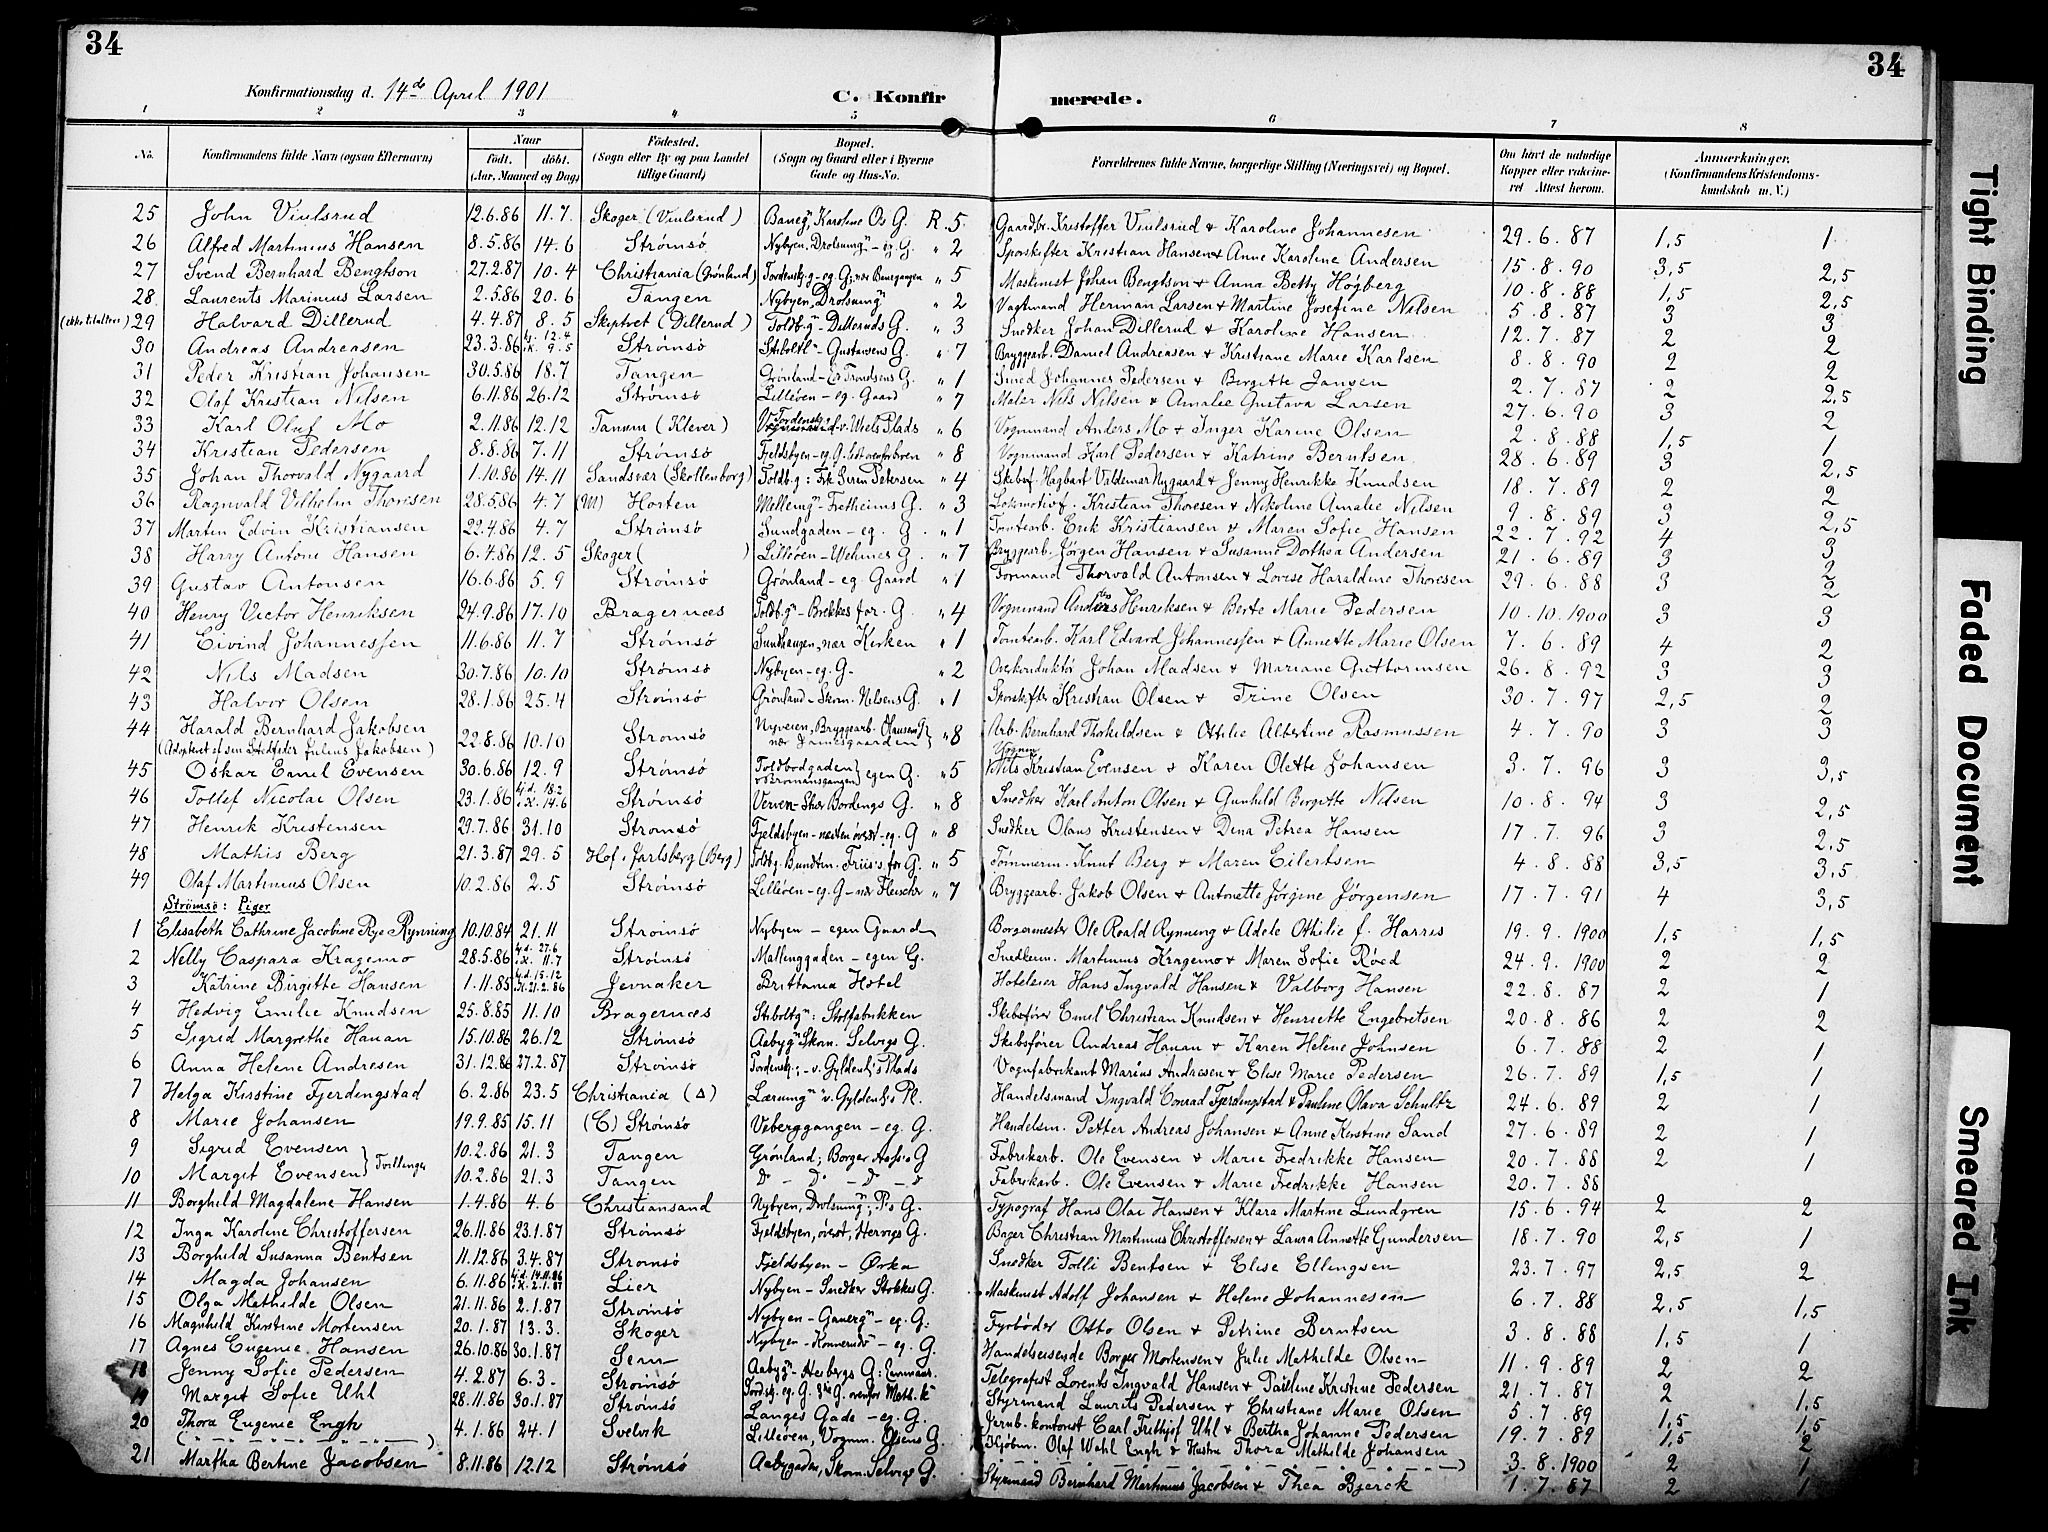 34
34
Konfirmationsdag d. 14de April 1901
C. Konfirmerede.
1 2 3 4 5 6 7 8
No. Konfirmandens fulde Navn (ogsaa Efternavn) Naar födt. döbt. (Aar, Maaned og Dag) Födested. (Sogn eller By og paa Landet tillige Gaard) Bopæl. (Sogn og Gaard eller i Byerne Gade og Hus-No. Forældrenes fulde Navne, borgerlige Stilling (Næringsvei) og Bopæl. Om havt de naturlige Kopper eller vaccineret Attest herom. Anmærkninger. (Konfirmandens Kristendomskundskab m. V.)
25 John Viulsrud 12.6.86 11.7. Skoger (Viulsrud) Baneg., Karoline Os G. R. 5 Gaardbr. Kristoffer Viulsrud & Karoline Johannesen 29.6.87 1,5 1
26 Alfred Martinius Hansen 8.5.86 14.6 Strømsø Nybyen, Drolsumg. - eg. G. " 2 Sporskifter Kristian Hansen & Anne Karoline Andersen 15.8.90 3,5 2,5
27 Svend Bernhard Bengtson 27.2.87 10.4 Christiania (Grønland) Tordensk.g - eg. G; nær Banegangen " 5 Maskinist Johan Bengtson & Anna Betty Høgberg 10.8.88 1,5 2,5
28 Laurents Marinius Larsen 2.5.86 20.6 Tangen Nybyen, Drolsumg. " 2 Vagtmand Herman Larsen & Martine Josefine Nilsen 5.8.87 3 3
29 Halvard Dillerud 4.4.87 8.5 Skiptvet (Dillerud) Toldb.g. - Dilleruds G. " 3 Snedker Johan Dillerud & Karoline Hansen 12.7.87 2 2
30 Andreas Andreasen 23.3.86 hj. 12.4 i K. 9.5 Strømsø Stiboltg. - Gustavsens G. " 7 Bryggearb. Daniel Andreasen & Kristiane Marie Karlsen 8.8.90 2 2
31 Peder Kristian Johansen 30.5.86 18.7 Tangen Grønland - Er Trondsens G. " 1 Smed Johannes Pedersen & Bergitte Jansen 2.7.87 2 2,5
32 Olaf Kristian Nilsen 6.11.86 26.12 Strømsø Lilleøen - eg. Gaard " 7 Maler Nils Nilsen & Amalie Gustava Larsen 27.6.90 3 2
33 Karl Oluf Mo 2.11.86 12.12 Tanum (Klever) Tordensk. v. Uhels Plads " 6 Vognmand Anders Mo & Inger Karine Olsen 2.8.88 1,5 1
34 Kristian Pedersen 8.8.86 7.11 Strømsø Fjeldsbyen - eg. G. lidt ovenfor broen " 8 Vognmand Karl Pedersen & Katrine Berntsen 28.6.89 3 2,5
35 Johan Thorvald Nygaard 1.10.86 14.11 Sandsvær (Skollenborg) Toldb.g: Frk Seren Petersen " 4 Skibsf. Hagbart Valdemar Nygaard & Jenny Henrikke Knudsen 18.7.89 2 2
36 Ragnvald Vilhelm Thoresen 28.5.86 4.7 (M) Horten Melleng. - Fretheims G. " 3 Lokomotivf. Kristian Thoresen & Nikoline Amalie Nilsen 9.8.89 3 2,5
37 Martin Edvin Kristiansen 22.4.86 4.7 Strømsø Sundgaden - eg. G. " 1 Tomtearb. Erik Kristiansen & Maren Sofie Hansen 22.7.92 4 3
38 Harry Antoni Hansen 6.4.86 12.5 Skoger ( ) Lilleøen - Wehners G. " 7 Bryggearb. Jørgen Hansen & Susanne Dorthea Andersen 21.6.89 3 2
39 Gustav Antonsen 16.6.86 5.9 Strømsø Grønland - eg. Gaard " 1 Formand Thorvald Antonsen & Lovise Haraldine Thoresen 29.6.88 3 2
40 Henry Victor Henriksen 24.9.86 17.10 Bragernæs Toldb.g. - Brekkes for. G. " 4 Vognmand Andreas Henriksen & Berte Marie Pedersen 10.10.1900 3 3
41 Eivind Johannessen 11.6.86 11.7 Strømsø Sundhaugen, nær Kirken " 1 Tomtearb. Karl Edvard Johannessen & Annette Marie Olsen 7.6.89 4 2
42 Nils Madsen 30.7.86 10.10 Strømsø Nybyen - eg. G. " 2 Overkonduktør Johan Madsen & Mariane Guttormsen 26.8.92 3 3
43 Halvor Olsen 28.1.86 25.4 Strømsø Grønland - Skom. Nilsens G. " 1 Sporskifter Kristian Olsen & Trine Olsen 30.7.97 2,5 2
44 Harald Bernhard Jakobsen (Adopteret af sin Stedfader Julius Jakobsen) 22.8.86 10.10 Strømsø Nyveien, Bryggearb. Olausens G. " 8 Arb. Bernhard Thorkildsen & Ottilie Albertine Rasmussen 4.7.90 3 3
45 Oskar Emil Evensen 30.6.86 12.9 Strømsø Toldbodgaden v Bromansgangen } egen G. " 5 Vognm. Nils Kristian Evensen & Karen Olette Johansen 3.7.96 3 3,5
46 Tollef Nicolai Olsen 23.1.86 hj.d. 18.2 i K. 14.6 Strømsø Verven - Skor Bordings G. " 8 Snedker Karl Anton Olsen & Gunhild Birgitte Nilsen 10.8.94 3 2,5
47 Henrik Kristensen 29.7.86 31.10 Strømsø Fjeldsbyen - næsten øverst - eg. G " 8 Snedker Olaus Kristensen & Dina Petrea Hansen 17.7.96 3 2,5
48 Mathis Berg 21.3.87 29.5 Hof i Jarlsberg (Berg) Toldbg. Bundtm. Friis's for G. " 5 Tømmerm. Knut Berg & Maren Eilertsen 4.8.88 3,5 3,5
49 Olaf Martinius Olsen 10.2.86 2.5 Strømsø Lilleøen - eg. G - nær Fleischer " 7 Bryggearb. Jakob Olsen & Antonette Jørgine Jørgensen 17.7.91 4 3,5
Strømsø: Piger
1 Elisabeth Cathrine Jacobine Rye Rynning 10.10.84 21.11 Strømsø Nybyen - egen Gaard Borgermester Ole Roald Rynning & Adele Othilie f. Harris 19.9.1900 1,5 1,5
2 Nelly Caspara Kragemo 28.5.86 hj.d. 27.6 i K. 11.7 Strømsø Mallinggaden - egen G. Snedkerm. Martinius Kragemo & Maren Sofie Røed 24.9.1900 2 2
3 Katrine Birgitte Hansen 1.11.85 hj.d. 15.12 i K. 21.2.86 Jevnaker Brittania Hotel Hoteleier Hans Ingvald Hansen & Valborg Hansen 22.8.87 2 1
4 Hedvig Emilie Knudsen 25.8.85 11.10 Bragernæs Stiboltg.: Stolfabrikken Skibsfører Emil Christian Knudsen & Henriette Engebretsen 20.8.86 2 2
5 Sigrid Margrethe Hanan 15.10.86 26.12 Strømsø Aabyg. Skom. Selvigs G. Skibsfører Andreas Hanan & Karen Helene Johnsen 6.7.88 2 1
6 Anna Helene Andresen 31.12.86 27.2.87 Strømsø Tordensk.; - v. Gyldenl;s Plads Vognfabrikant Marius Andresen & Elise Marie Pedersen 26.7.89 1,5 1
7 Helga Kirstine Fjerdingstad 6.2.86 23.5 Christiania (Δ) Lærumg. v. Gyldenl;s Pl. Handelsmand Ingvald Conrad Fjerdingstad & Pauline Olava Schultz 24.6.89 2 1
8 Marie Johansen 19.9.85 15.11 (C) Strømsø Veberggangen - eg. G. Handelsm. Petter Andreas Johansen & Anne Kirstine Sand 27.6.89 2 1
9 Sigrid Evensen } Tvillinger 10.2.86 21.3 Tangen Grønland; Borger Aass's G Fabrikarb. Ole Evensen & Marie Fredrikke Hansen 20.7.88 2 1
10 Margit Evensen 10.2.86 21.3 Tangen do - do - do Fabrikarb. Ole Evensen & Marie Fredrikke Hansen 20.7.88
11 Borghild Magdalene Hansen 1.4.86 4.6 Christiansand Nybyen, Drolsumg.; P.s G. Typograf Hans Olai Hansen & Klara Martine Lundgren 15.6.94 2 2
12 Inga Karoline Christoffersen 26.11.86 23.1.87 Strømsø Fjeldsbyen, øverst, Hervigs G. Bager Christian Martinius Christoffersen & Laura Annette Gundersen 18.7.90 2,5 1
13 Borghild Susanna Bentsen 11.12.86 3.4.87 Strømsø Fjeldsbyen - Ørka Snedker Tolli Bentsen & Elise Ellingsen 23.7.97 2,5 2
14 Magda Johansen 6.11.86 hj.d. 14.11.86 i K. 2.1.87 Lier Nybyen - Snedker Stokkes G. Maskinist Adolf Johansen & Helene Johannesen 6.7.88 2,5 1,5
15 Olga Mathilde Olsen 21.11.86 2.1.87 Strømsø Nybyen - Gauerg. - eg. G: Fyrbøder Otto Olsen & Petrine Berntsen 3.8.88 1,5 1
16 Magnhild Kirstine Mortensen 20.1.87 13.3. Skoger Nybyen - Konnerudg. - eg. G. Handelseisende Borger Mortensen & Julie Mathilde Olsen 11.9.89 2 2
17 Agnes Eugenie Hansen 26.10.86 30.1.87 Sem Aabyg. - Hesbergs G: Telegrafist Lorents Ingvald Hansen & Pauline Kristine Pedersen 21.7.87 2 1,5
18 Jenny Sofie Pedersen 4.2.87 6.3. Strømsø Tordsk. eg. G. 3die G. ovenfor Meth. K. Styrmand Laurits Pedersen & Christiane Marie Olsen 5.7.89 1,5 1,5
19 Margit Sofie Uhl 28.11.86 30.1.87 Strømsø Langes Gade - eg. G. Jernb. kontorist Carl Frithjof Uhl & Bertha Johanne Pedersen 19.7.89 1,5 2
20 Thora Eugenie Engh 4.1.86 24.1 Svelvik Lilleøen, Vognm. Olsens G. Kjøbm. Olaf Wahl Engh & Hustru Thora Mathilde Johansen 3.8.1900 2 1
21 Martha Bertine Jacobsen 8.11.86 12.12 Strømsø Aabygaden, Skom. Selvigs G. Styrmand Bernhard Martinius Jacobsen & Thea Bjerck 1.7.87 2 1
Tight Binding
Faded Document
Smeared Ink